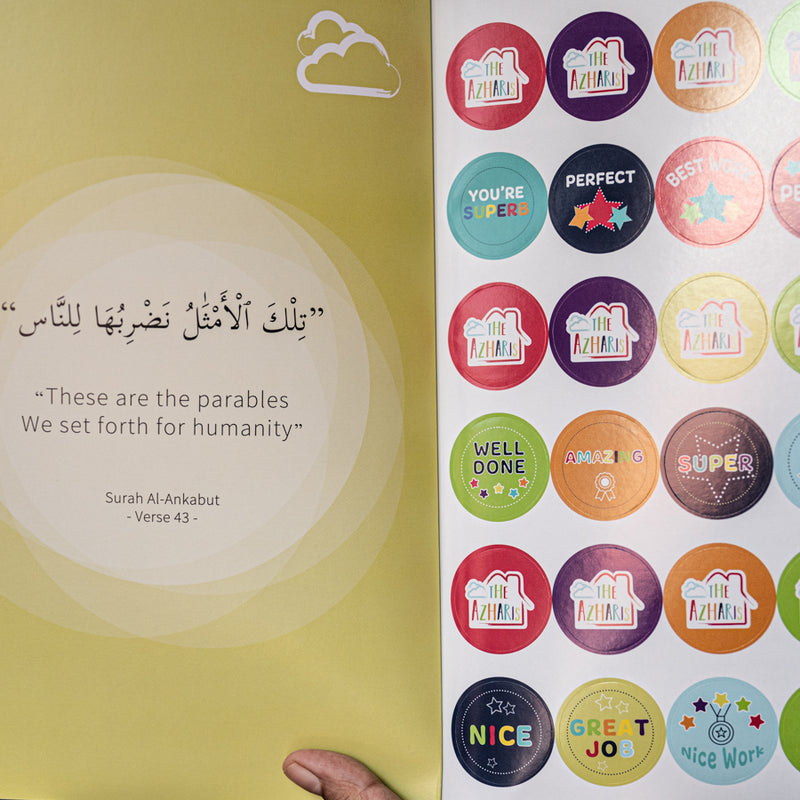 ”تِلْكَ ٱلْأَمْثَـٰلُ نَضْرِبُهَا لِلنَّاسِ“
“These are the parables
We set forth for humanity”
Surah Al-Ankabut
- Verse 43 -
THE
AZHARIS
THE
AZHARIS
THE
AZHARI
YOU'RE
SUPERB
PERFECT
BEST WORK
PE
THE
AZHARIS
THE
AZHARIS
THE
AZHARIS
WELL
DONE
AMAZING
SUPER
THE
AZHARIS
THE
AZHARIS
THE
AZHARIS
NICE
GREAT
JOB
Nice Work